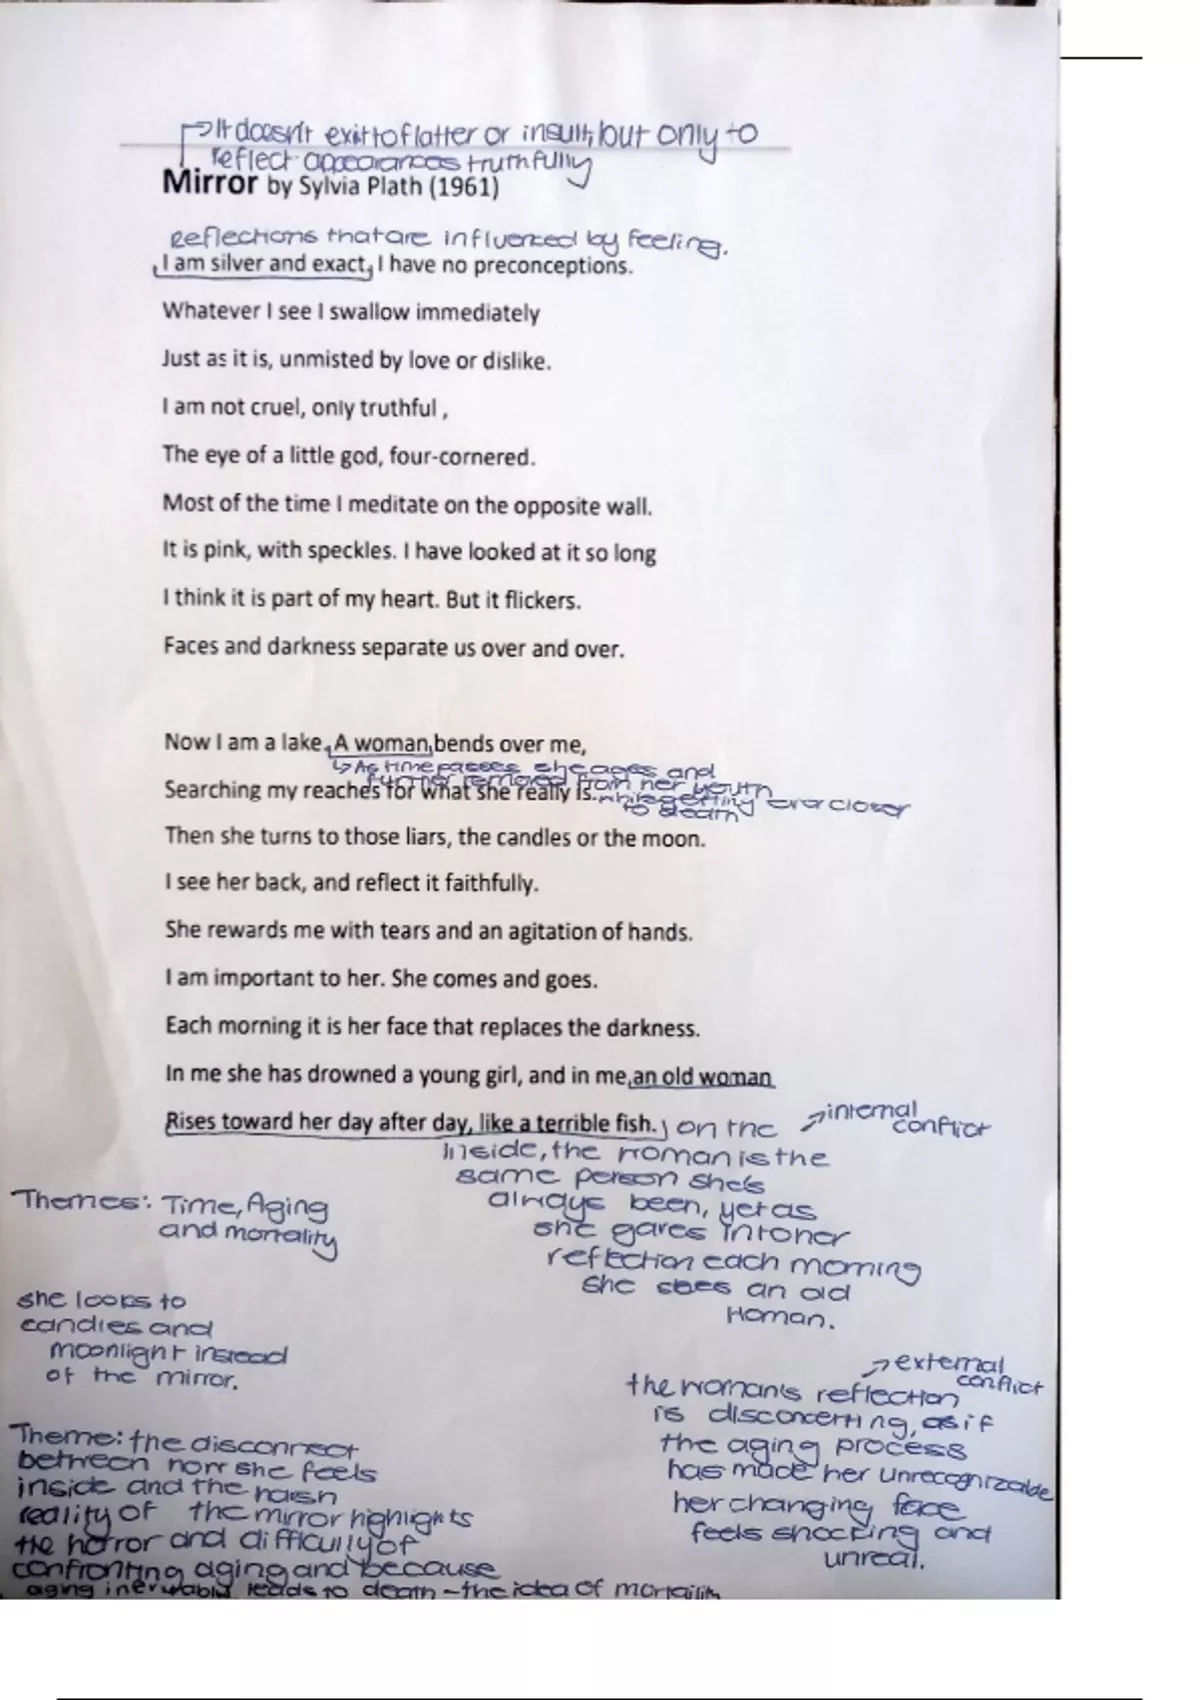 It doesn't exit to flatter or insult, but only to
reflect appearances truthfully
Mirror by Sylvia Plath (1961)
Reflections that are influenced by feeling.
I am silver and exact, I have no preconceptions.
Whatever I see I swallow immediately
Just as it is, unmisted by love or dislike.
I am not cruel, only truthful ,
The eye of a little god, four-cornered.
Most of the time I meditate on the opposite wall.
It is pink, with speckles. I have looked at it so long
I think it is part of my heart. But it flickers.
Faces and darkness separate us over and over.
Now I am a lake. A woman bends over me,
As time passes she ages and
further removed from her youth
Searching my reaches for what she really is.
while getting ever closer
to death
Then she turns to those liars, the candles or the moon.
I see her back, and reflect it faithfully.
She rewards me with tears and an agitation of hands.
I am important to her. She comes and goes.
Each morning it is her face that replaces the darkness.
In me she has drowned a young girl, and in me an old woman
Rises toward her day after day, like a terrible fish.
internal
conflict
on the
inside, the woman is the
same person she's
always been, yet as
she gazes into her
reflection each morning
she sees an old
woman.
Themes: Time, Aging
and mortality
she looks to
candles and
moonlight instead
of the mirror.
external
conflict
the woman's reflection
is disconcerting, as if
the aging process
has made her unrecognizable
her changing face
feels shocking and
unreal.
Theme: the disconnect
between how she feels
inside and the harsh
reality of the mirror highlights
the horror and difficulty of
confronting aging and because
aging inevitably leads to death - the idea of mortality